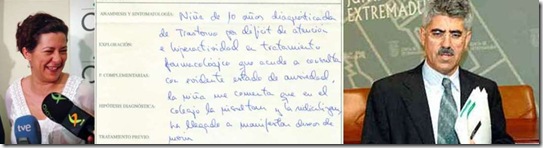 EXTREMADU
ANAMNESIS Y SINTOMATOLOGÍA:
Niña de 10 años diagnosticada
de Trastorno por déficit de atención
EXPLORACIÓN:
e hiperactividad en tratamiento
farmacológico que acude a consulta
Y COMPLEMENTARIAS:
con evidente estado de ansiedad.
la niña me comenta que en el
HIPÓTESIS DIAGNÓSTICA:
colegio la maltratan y la
ha llegado a manifestar deseos de
TRATAMIENTO PREVIO:
morir
tve